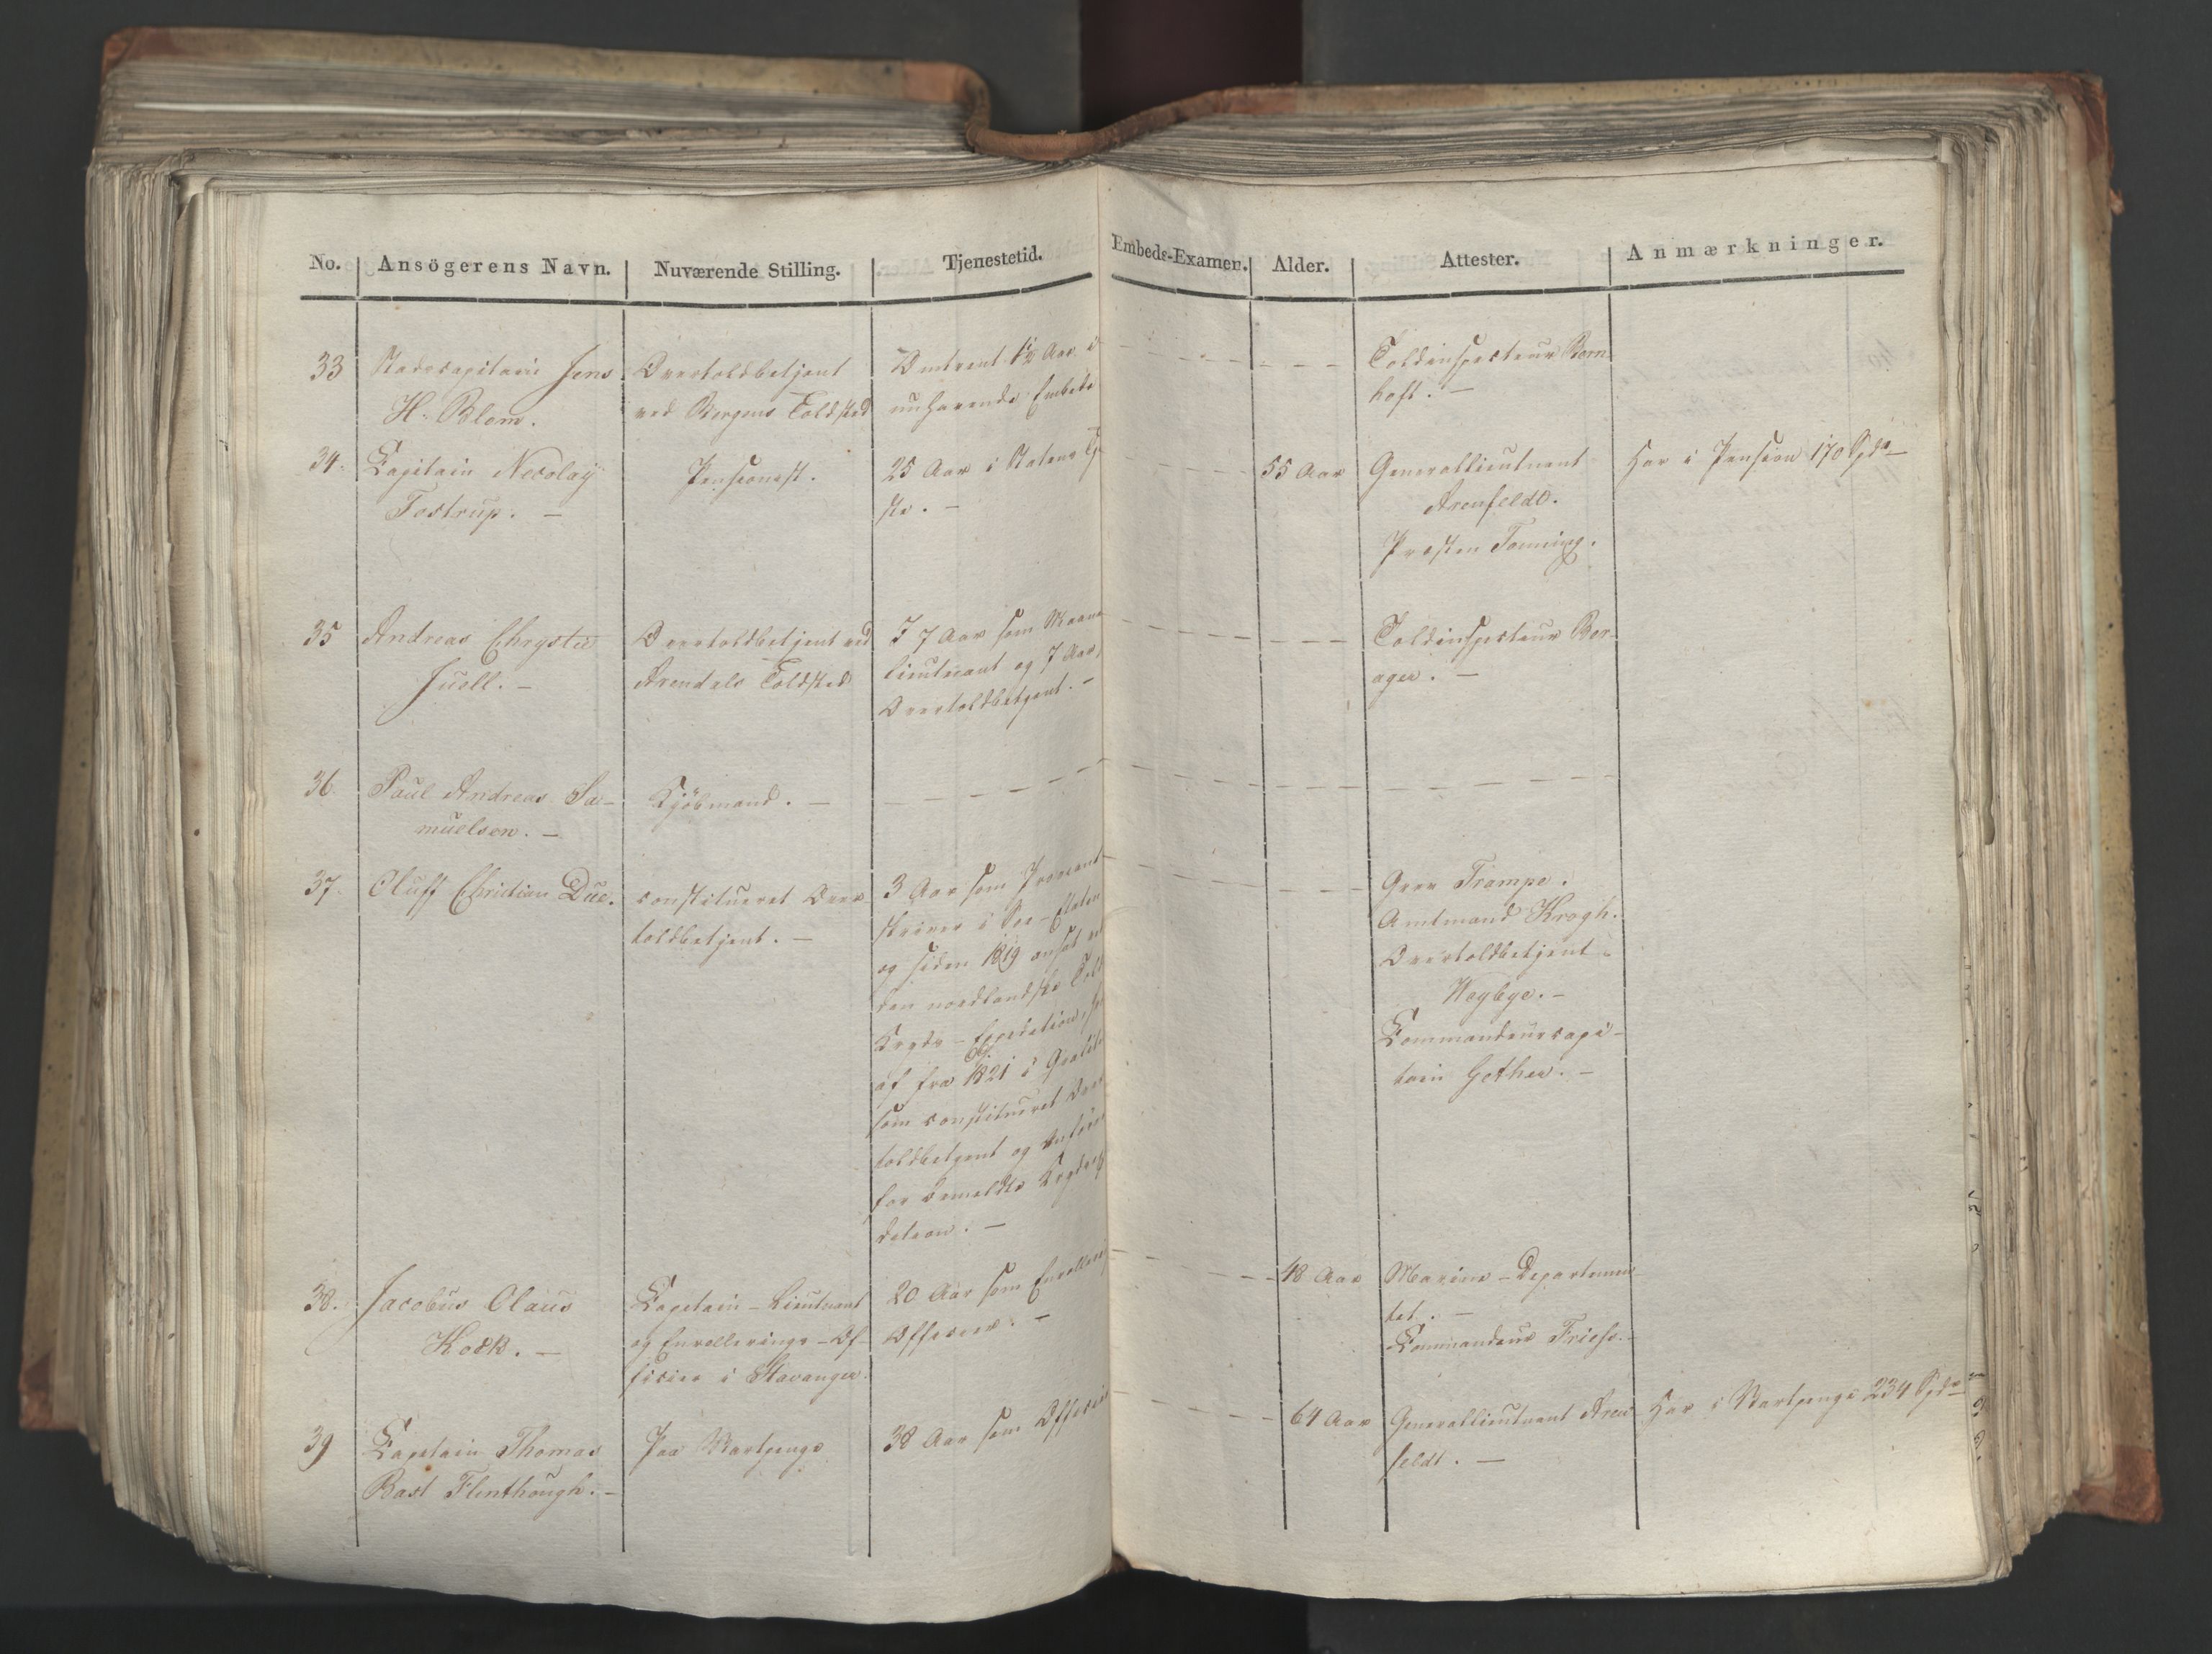 No. Ansögerens Navn. Nuværende Stilling. Tjenestetid. Embeds-Examen. Alder. Attester. Anmærkninger.
33 Stadscapitain Jens
H. Blom.
Overtoldbetjent
ved Bergens Toldsted
Omtrent 1½ Aar i
nuhavende Embede
Toldinspecteur Born
hoft. —
34. Capitain Nicolay
Tostrup. —
Pensionist.
25 Aar i Statens Tje
ste. —
55 Aar
Generallieutnant
Arenfeldt.
Præsten Tonning.
Har i Pension 170 Spd
35 Andreas Chrystie
Juell. —
Overtoldbetjent ved
Arendals Toldsted
I 7 Aar som Maaned
lieutnant og 7 Aar
Overtoldbetjent. —
Toldinspecteur Bor-
ager. —
36. Paul Andreas Sa-
muelsen. —
Kjöbmand. —
37. Oluff Christian Due.
constitueret Over
toldbetjent. —
3 Aar som Proviant
skriver i Søe-Etaten
og siden 1819 ansat ved
den nordlandske Told
Kryds-Expedition,
af fra 1821 i Qualite
som constitueret Over
toldbetjent og Anförer
for bemeldte Krydsexpe
dition. —
Grev Trampe.
Amtmand Krogh.
Overtoldbetjent
Weybye. —
Commandeurcapi-
tain Gether. —
38. Jacobus Claus
Kock. —
Capitain-Lieutnant
og Enrollerings-Of-
ficier i Stavanger.
20 Aar som Enrollerings
Officier. —
48 Aar
Marine-Departemen
tet. —
Commandeur Friese. —
39 Capitain Thomas
Bast Flinthough. —
Paa Vartpenge
38 Aar som Officier
64 Aar
Generallieutnant Aren
feldt. —
Har i Vartpenge 234 Spd